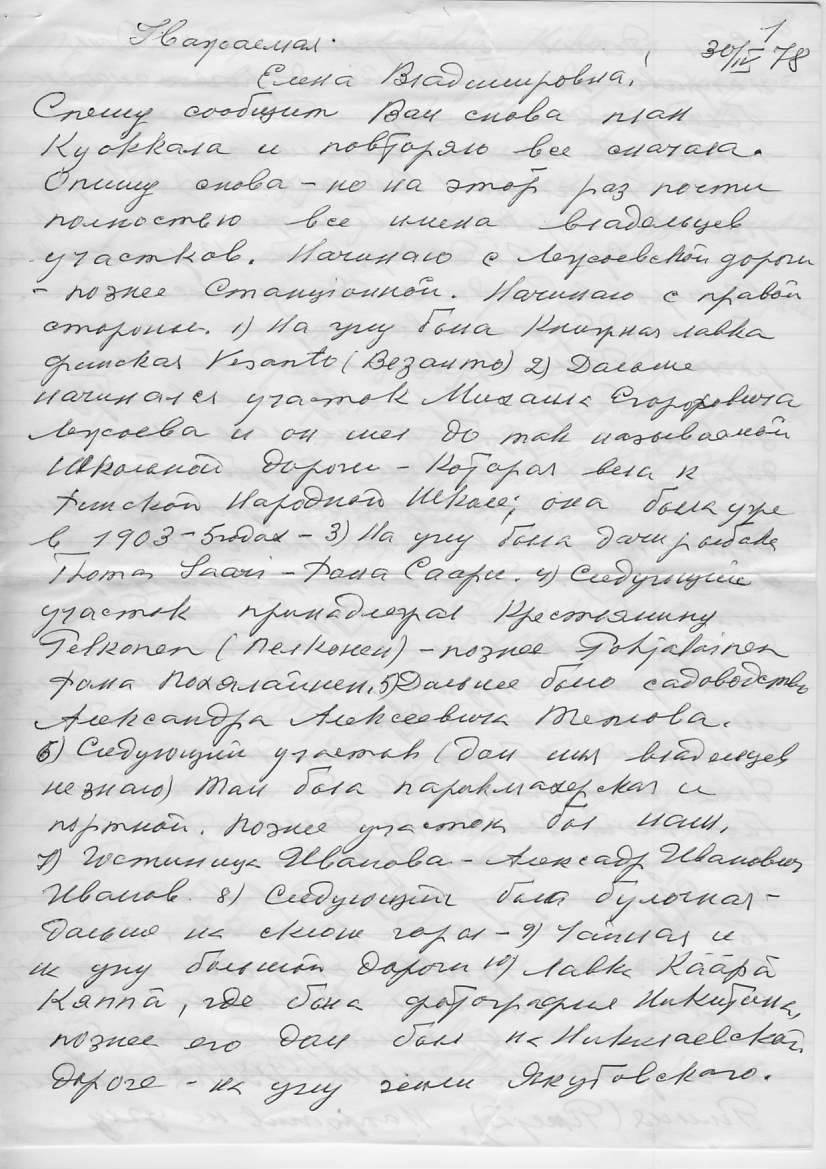 1
Уважаемая
30/IV 78
Елена Владимировна!
Спешу сообщит Вам снова план
Куоккала и повторяю все сначала.
Опишу снова – но на этот раз почти
полностью все имена владельцев
участков. Начинаю с дороги
– познее Станционной. Начинаю с правой
стороны. 1) На углу была Книжная лавка
финская Vesanto (Везанто) 2) Дальше
начинался участок Михаила Егоровича
и он шел до так называемой
Школьной дороги – которая вела к
Финской Народной Школе; она была уже
в 1903–5 годах – 3) На углу была дача рыбака
Thomas Saari – Фома Саари. 4) Следующий
участок принадлежал Крестянину
Pelkonen (Пелконен) – познее Pohjalainen
Фома Похялайнен. 5) Дальнее было садоводство
Александра Алексеевича
6) Следующий участок (дом имя владельцев
не знаю) Там была парикмахерская и
портной. Познее участок был наш.
7) Гостиница Иванова – Александр Иванович
Иванов. 8) Следующий была булочная –
дальше на склоне горы – 9) Чайная и
на углу большой дороги 10) лавка Kääpä
Кяппä, где была фотография Никитина,
познее его дом был на Николаевской
дороге – на углу земли Якубовского.